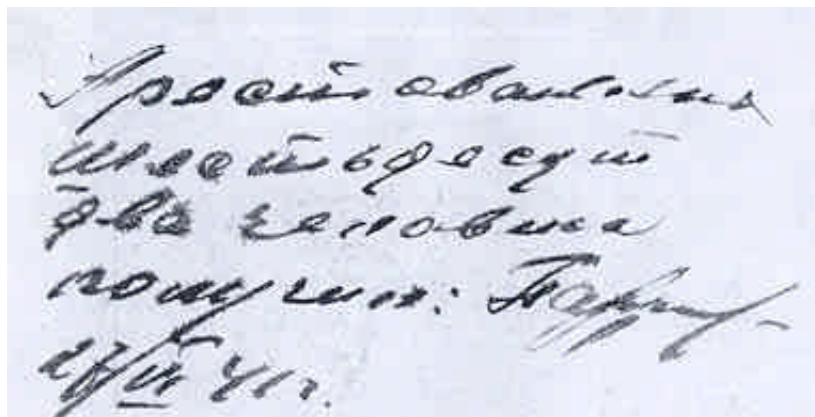 Арестованных
шестьдесят
два человека
получил:
27/VI 41г.